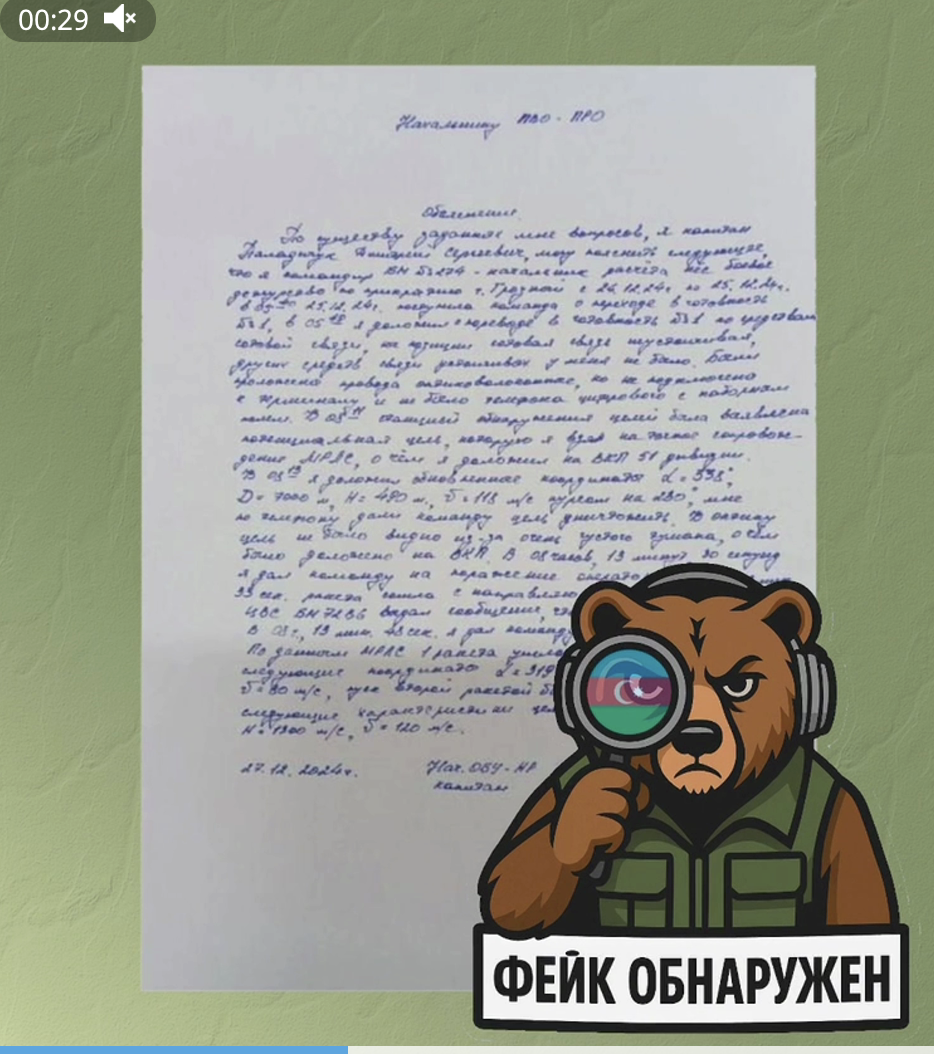 00:29
Начальнику ПВО - ПРО
Объяснение.
По существу заданных мне вопросов, я капитан
Паладичук Дмитрий Сергеевич, могу пояснить следующее,
что я командир БМ № 274 - начальник расчёта нёс боевое
дежурство по прикрытию г. Грозный с 24.12.24г. по 25.12.24г.
25.12.24г. поступила команда о переходе в готовность
№1, в 05 я доложил о переводе в готовность №1 по средствам
сотовой связи, на позиции сотовая связь неустойчивая,
других средств связи у меня не было. Были
проложены провода оптиковолоконные, но не подключено
к терминалу и не было телефона цифрового с наборным
полем. В 08 станцией обнаружения целей была выявлена
потенциальная цель, которую я взял на точное сопровож-
дение МРЛС, о чём я доложил на ВКП 51 дивизии.
В 08 я доложил обновленные координаты α = 338°,
D = 7000 м, H = 480 м, V = 118 м/с курсом на 280°, мне
по телефону дали команду цель уничтожить. В оптику
цель не было видно из-за очень густого тумана, о чём
было доложено на ВКП. В 08 часов, 13 минут 30 секунд
я дал команду на поражение
33 сек. ракета сошла с направляю
ЦВС БМ 72В6 выдал сообщение, чт
В 08 ч, 13 мин. 48 сек. я дал команду
По данным МРЛС 1 ракета
следующие координаты α = 319
V = 80 м/с, пуск второй ракетой б
следующие характеристики цел
H = 1300 м/с, V = 120 м/с.
27.12.2024г. Нач. ОБУ - НР
капитан
ФЕЙК ОБНАРУЖЕН